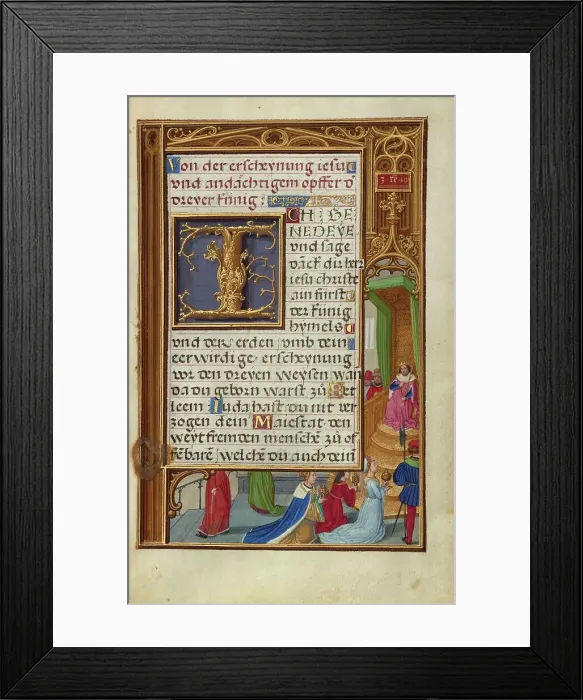 Von der erscheynung iesu
vnd andächtigem opffer d
dreyer künig:
3 re 10
ICH GE
NEDEYE
vnd sage
danck dir herr
iesu christe
ain fürst
der künig
hymels
vnd der erden vmb dein
eerwirdige erscheynung
vor den dreyen weysen wan
da du geborn warst zů Bet
leem Nu da hast du nit ver
zogen dein Maiestat den
weyt fremden mensche zů of
febare welche du auch dein